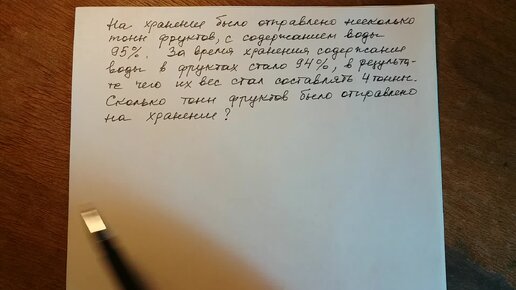 На хранение было отправлено несколько
тонн фруктов, с содержанием воды
95%. За время хранения содержание
воды в фруктах стало 94%, в результа-
те чего их вес стал составлять 4 тонны.
Сколько тонн фруктов было отправлено
на хранение?